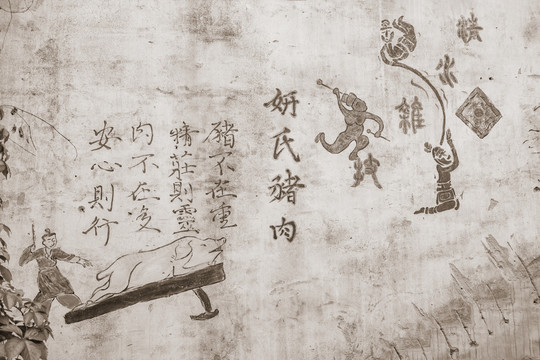 雜技
妍氏豬肉
豬不在重
精莊則靈
肉不在
安心則行